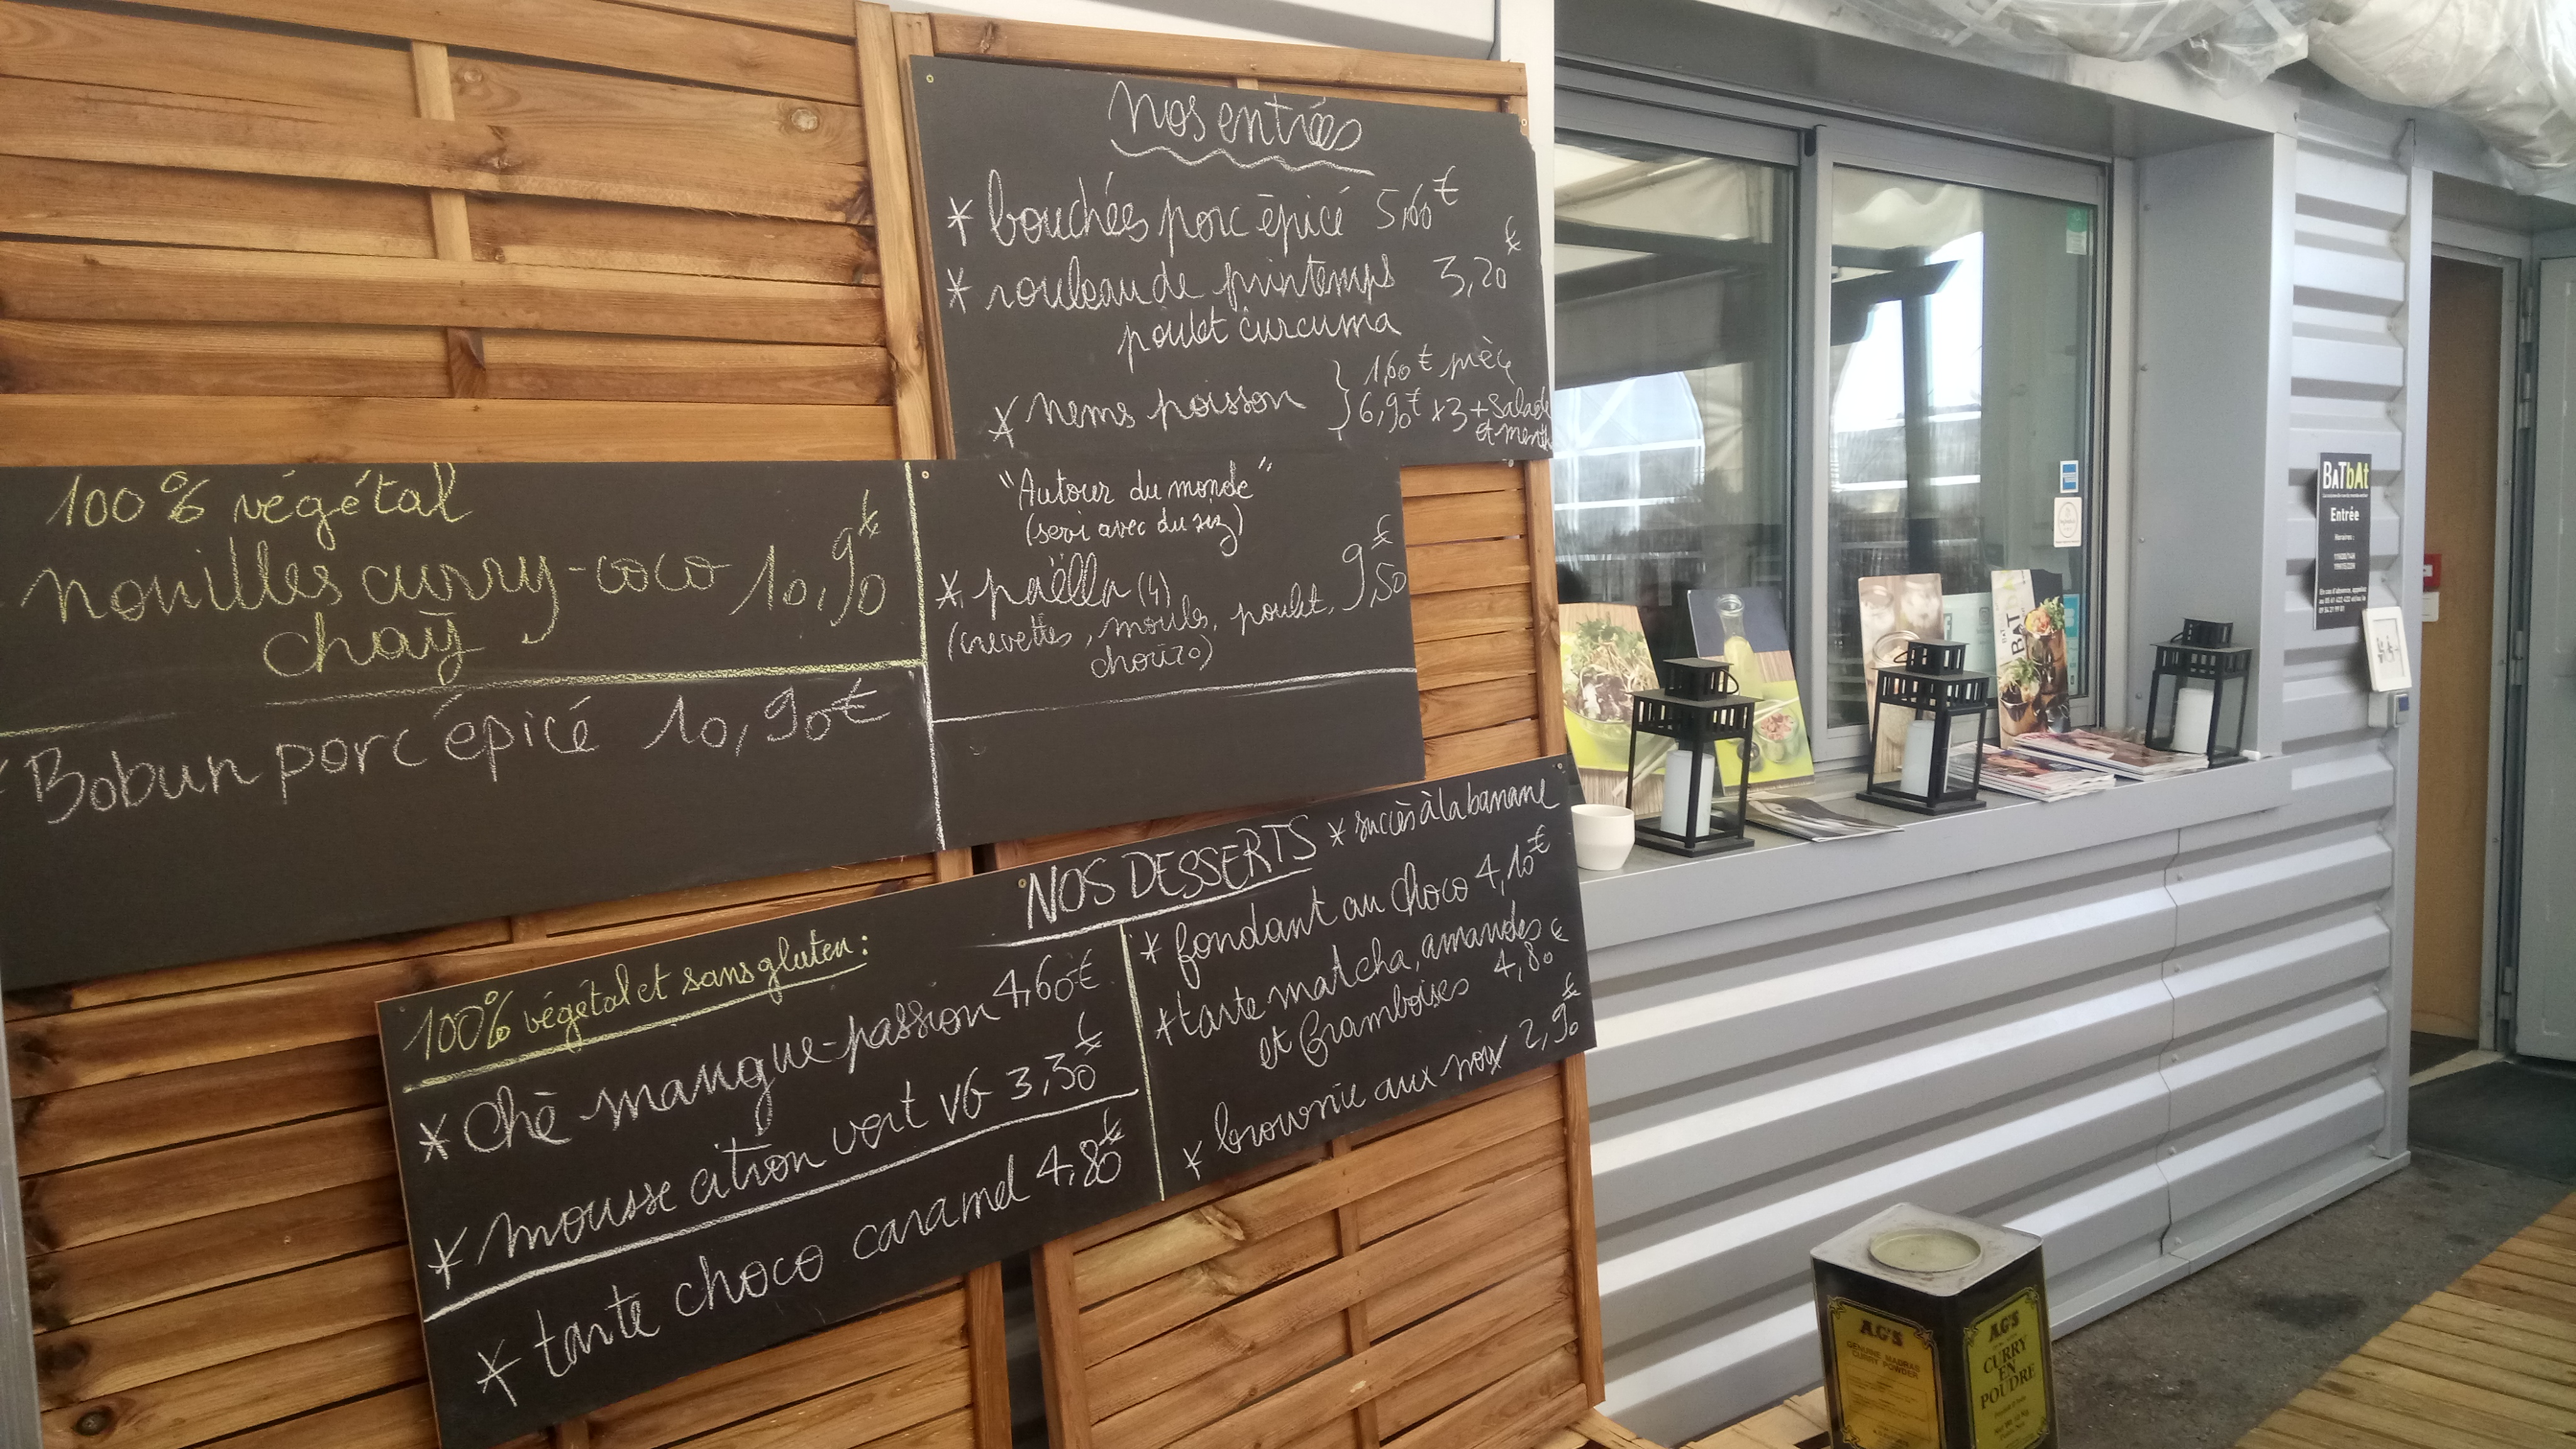 nos entrées
* bouchées porc épicé 5,60€
* rouleau de printemps 3,20€
poulet curcuma
* nems poisson } 1,60€ pièce
6,90€ x3 + salade
et menthe
100% végétal
nouilles curry-coco 10,90€
chaÿ
* Bobun porc épicé 10,90€
"Autour du monde"
(servi avec du riz)
* paëlla (4) 9,50€
(crevettes, moules, poulet,
chorizo)
NOS DESSERTS
100% végétal et sans gluten:
* chè mangue-passion 4,60€
* mousse citron vert VG 3,30€
* tarte choco caramel 4,80€
* succès à la banane
* fondant au choco 4,10€
* tarte matcha, amandes
et framboises 4,80€
* brownie aux noix 2,90€
BaTbAt
Entrée
Horaires :
BAT
A.G'S
GENUINE MADRAS
CURRY POWDER
A.G'S
CURRY
EN
POUDRE